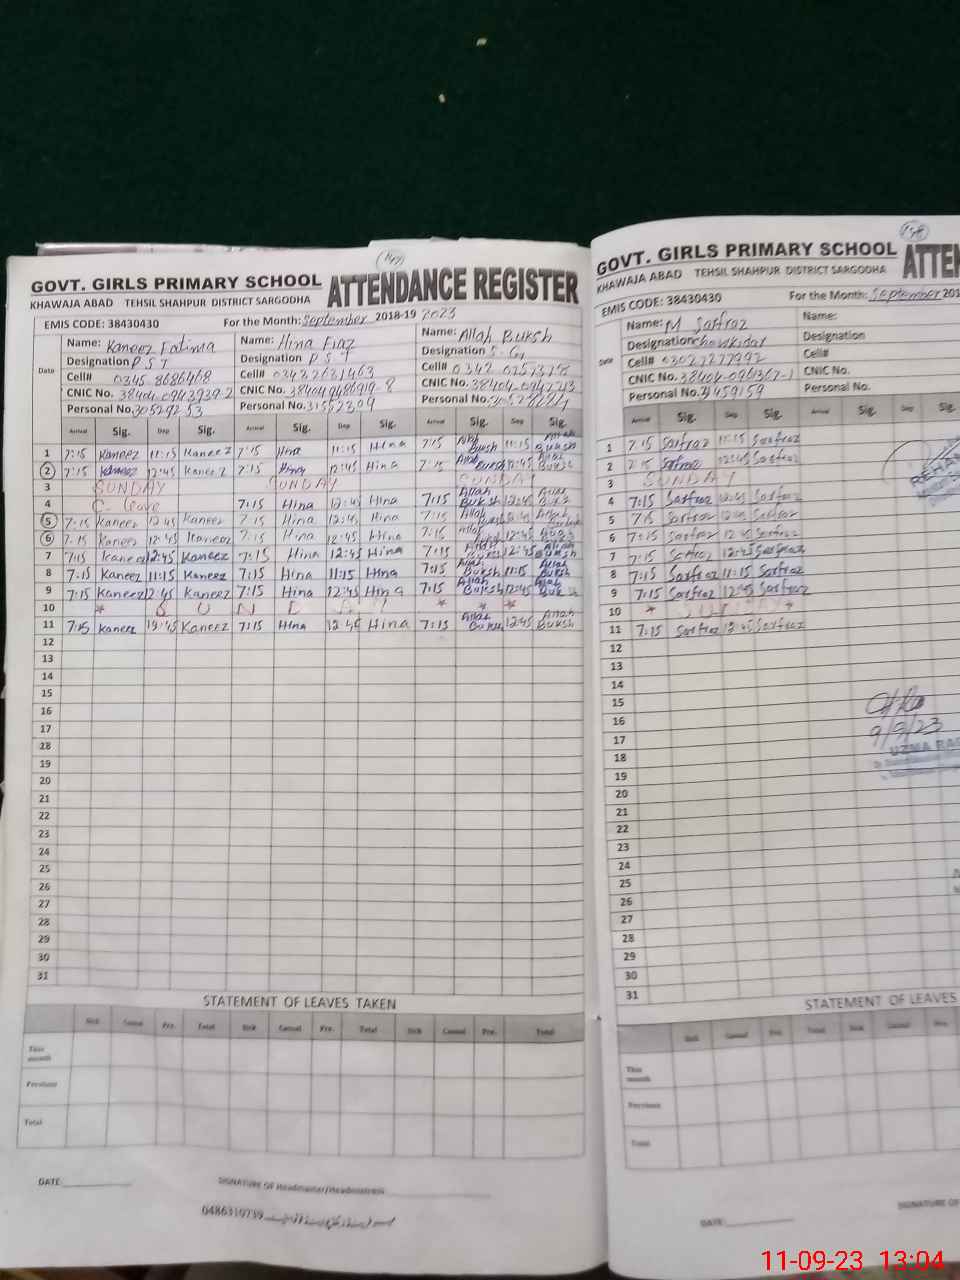 GOVT. GIRLS PRIMARY SCHOOL ATTENDANCE REGISTER
KHAWAJA ABAD TEHSIL SHAHPUR DISTRICT SARGODHA
EMIS CODE: 38430430 For the Month: September 2018-19 2023
Name: Kaneez Fatima Name: Hina Fiaz Name: Allah Buksh
Date Designation P S T Designation P. S. T Designation
Cell# 0345 8686468 Cell# Cell#
CNIC No. CNIC No. CNIC No.
Personal No. Personal No. Personal No.
Arrival Sig. Dep Sig. Arrival Sig. Dep Sig. Arrival Sig. Dep Sig.
1 7:15 Kaneez 11:15 Kaneez 7:15 Hina 11:15 Hina 7:15 Allah Buksh 11:15 Allah Buksh
2 7:15 Kaneez 12:45 Kaneez 7:15 Hina 12:45 Hina 7:15 Allah Buksh 12:45 Allah Buksh
3 SUNDAY SUNDAY SUNDAY
4 C. leave 7:15 Hina 12:45 Hina 7:15 Allah Buksh 12:45 Allah Buksh
5 7:15 Kaneez 12:45 Kaneez 7:15 Hina 12:45 Hina 7:15 Allah Buksh 12:45 Allah Buksh
6 7:15 Kaneez 12:45 Kaneez 7:15 Hina 12:45 Hina 7:15 Allah 12:45
7 7:15 Kaneez 12:45 Kaneez 7:15 Hina 12:45 Hina 7:15 Allah Buksh 12:45 Allah Buksh
8 7:15 Kaneez 11:15 Kaneez 7:15 Hina 11:15 Hina 7:15 Allah Buksh 11:15 Allah Buksh
9 7:15 Kaneez 12:45 Kaneez 7:15 Hina 12:45 Hina 7:15 Allah Buksh 12:45 Allah Buksh
10 * S U N D A Y * * *
11 7:15 Kaneez 12:45 Kaneez 7:15 Hina 12:45 Hina 7:15 Allah Buksh 12:45 Allah Buksh
12
13
14
15
16
17
28
19
20
21
22
23
24
25
26
27
28
29
30
31
STATEMENT OF LEAVES TAKEN
Sick Casual Pre. Total Sick Casual Pre. Total Sick Casual Pre. Total
This month
Previous
Total
DATE SIGNATURE OF Headmaster/Headmistress
0486310739
GOVT. GIRLS PRIMARY SCHOOL ATTEN
KHAWAJA ABAD TEHSIL SHAHPUR DISTRICT SARGODHA
EMIS CODE: 38430430 For the Month: September 201
Name: M Sarfraz Name:
Date Designation Chowkidar Designation
Cell# 03027277992 Cell#
CNIC No. 38404-0943671-1 CNIC No.
Personal No. 31459159 Personal No.
Arrival Sig. Dep Sig. Arrival Sig. Dep Sig.
1 7:15 Sarfraz 11:15 Sarfraz
2 7:15 Sarfraz 12:45 Sarfraz
3 SUNDAY
4 7:15 Sarfraz 12:45 Sarfraz
5 7:15 Sarfraz 12:45 Sarfraz
6 7:15 Sarfraz 12:45 Sarfraz
7 7:15 Sarfraz 12:45 Sarfraz
8 7:15 Sarfraz 11:15 Sarfraz
9 7:15 Sarfraz 12:45 Sarfraz
10 * SUNDAY *
11 7:15 Sarfraz 12:45 Sarfraz
12
13
14
15
16
17
18
19
20
21
22
23
24
25
26
27
28
29
30
31
REHAN
9/9/23
UZMA
STATEMENT OF LEAVES
Sick Casual Pre. Total Sick Casual Pre.
This month
Previous
Total
DATE SIGNATURE OF
11-09-23 13:04